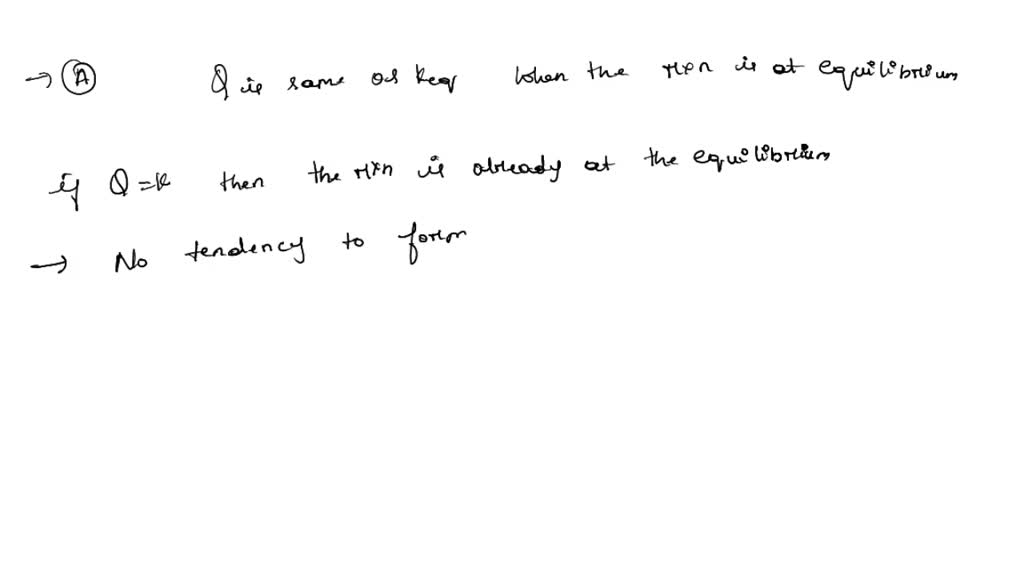 → Ⓐ Q is same as keq when the rxn is at equilibrium
if Q = k then the rxn is already at the equilibrium
→ No tendency to form